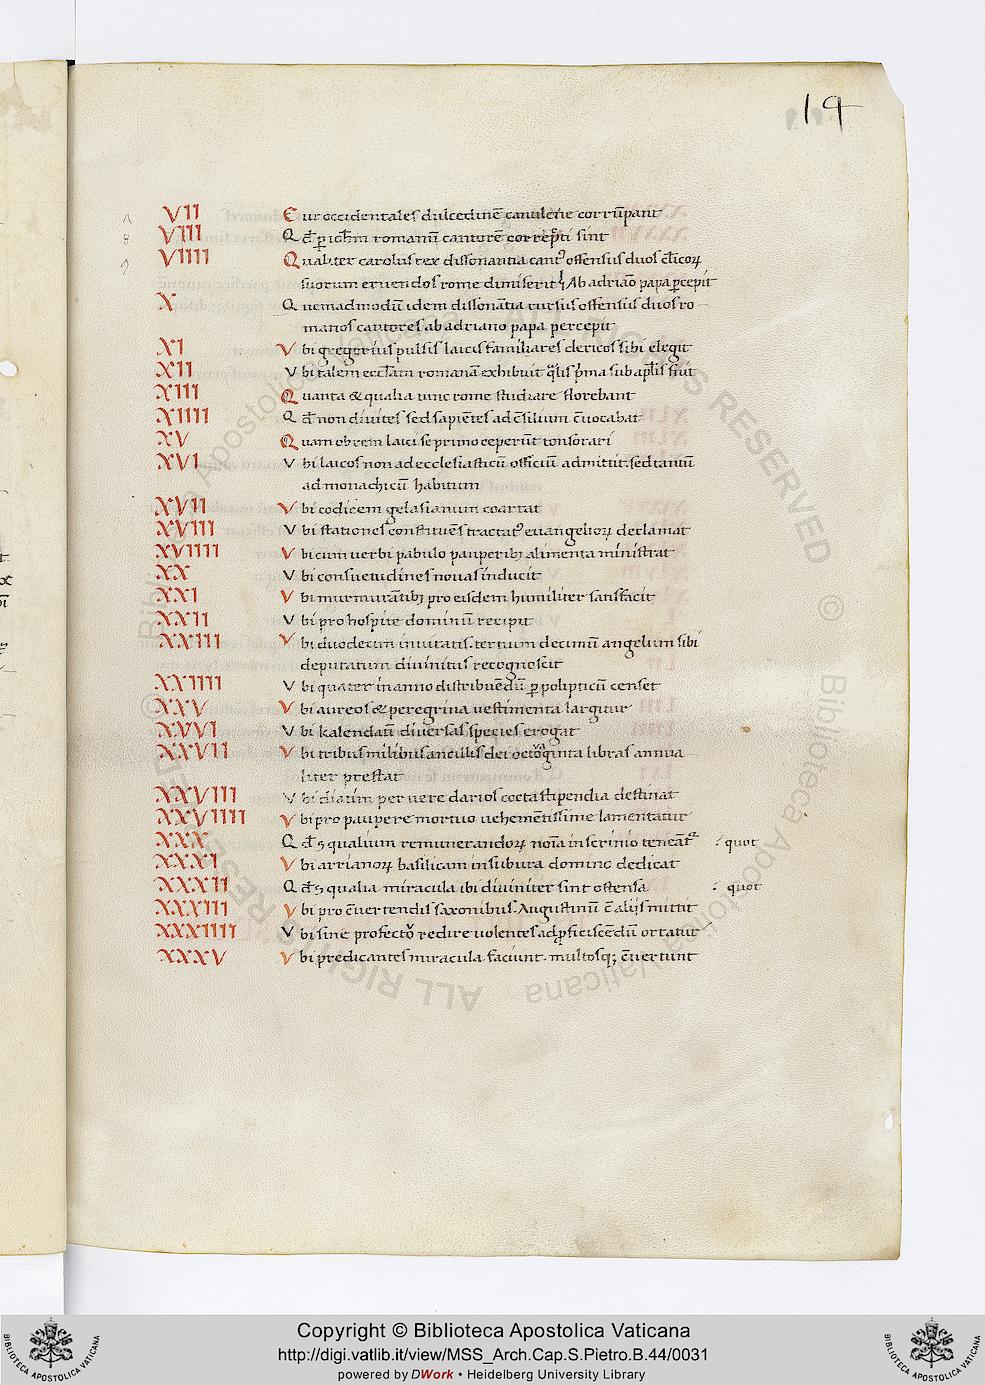 19
VII Cur occidentales dulcedinē cantilene corrūpant
VIII Qd̄ ꝑ ioh̄m romanū cantorē correpti sint
VIIII Qualiter carolus rex dissonantia cantꝰ offensus duos cl̄icoꝝ
suorum erudiendos rome dimiserit. Ab adriāo papa ꝑcepit
X Quemadmodū idem dissonātia rursus offensus duos ro
manos cantores ab adriano papa percepit
XI Vbi gregorius pulsis laicis familiares clericos sibi elegit
XII Vbi talem eccl̄am romanā exhibuit q̄lis p̄ma sub apl̄is fuit
XIII Quanta & qualia tunc rome studia re florebant
XIIII Qd̄ non diuites sed sapiētes ad c̄silium c̄uocabat
XV Quam obrem laici se primo ceperūt tonsorari
XVI Vbi laicos non ad ecclesiasticū officiū admittit. sed tantū
ad monachicū habitum
XVII Vbi codicem gelasianum coartat
XVIII Vbi stationes constituēs tractatꝰ euangelioꝝ declamat
XVIIII Vbi cum uerbi pabulo pauperibꝫ alimenta ministrat
XX Vbi consuetudines nouas inducit
XXI Vbi murmurātibꝫ pro eisdem humiliter satisfacit
XXII Vbi pro hospite dominū recipit
XXIII Vbi duodecim inuitatis. tertium decimū angelum sibi
deputatum diuinitus recognoscit
XXIIII Vbi quater in anno distribuēdū ꝑ polipticū censet
XXV Vbi aureos & peregrina uestimenta largitur
XXVI Vbi kalendatī diuersas species erogat
XXVII Vbi tribus milibus ancillis dei octoginta libras annua
liter prestat
XXVIII Vbi diatim per ueredarios cocta stipendia destinat
XXVIIII Vbi pro paupere mortuo uehemētissime lamentatur
XXX Qd̄ ⁊ qualium remunerandoꝝ noīa in scrinio teneāt quot
XXXI Vbi arrianoꝝ basilicam in subura domino dedicat
XXXII Qd̄ ⁊ qualia miracula ibi diuiniter sint ostensa quot
XXXIII Vbi pro c̄uertendis saxonibus. Augustinū c̄ alijs mittit
XXXIIII Vbi sine profectu redire uolentes ad ꝓficiscendū ortatur
XXXV Vbi predicantes miracula faciunt. multosqꝫ c̄uertunt
Copyright © Biblioteca Apostolica Vaticana
http://digi.vatlib.it/view/MSS_Arch.Cap.S.Pietro.B.44/0031
powered by DWork • Heidelberg University Library